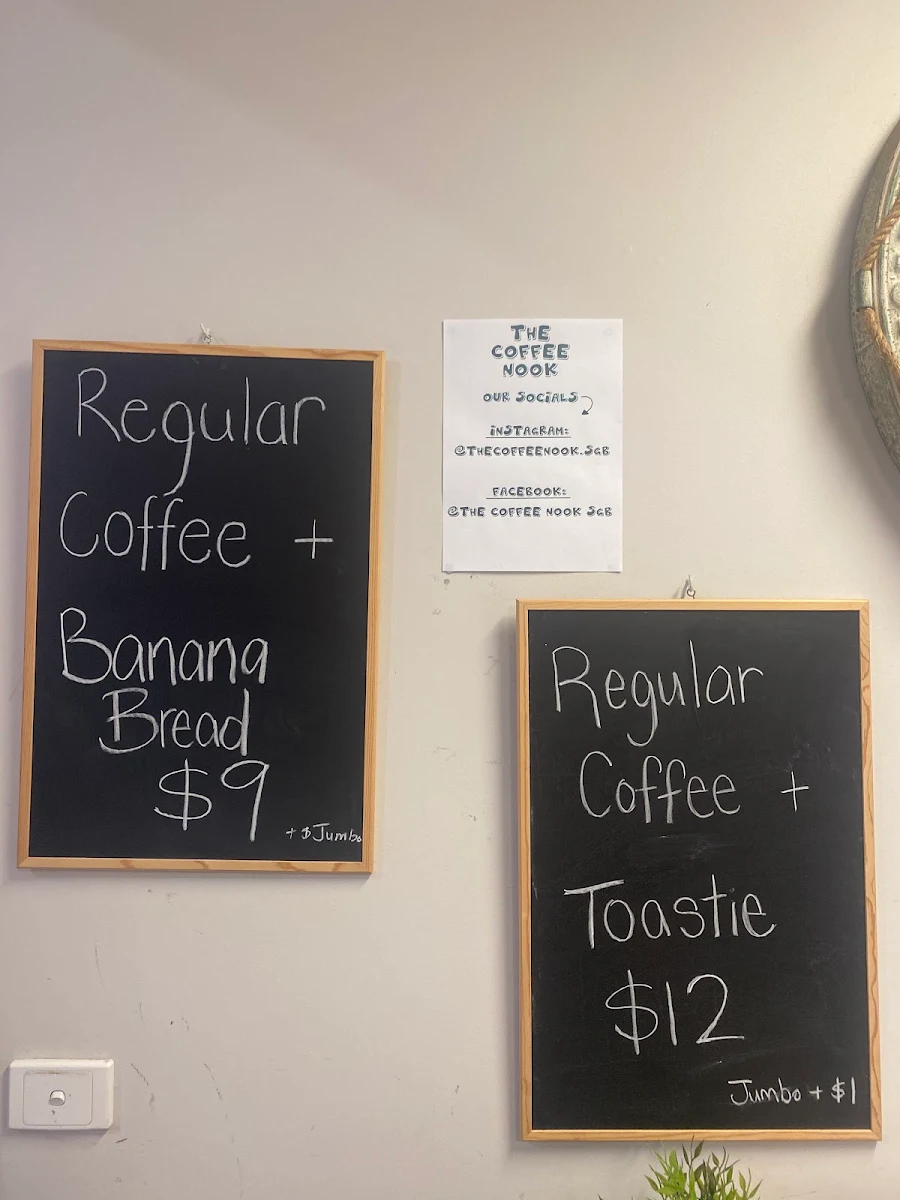 Regular
Coffee +
Banana
Bread
$9
+ $ Jumbo
THE
COFFEE
NOOK
OUR SOCiALS
iNSTAGRAM:
@THECOFFEENOOK.SGB
FACEBOOK:
@THE COFFEE NOOK SGB
Regular
Coffee +
Toastie
$12
Jumbo + $1